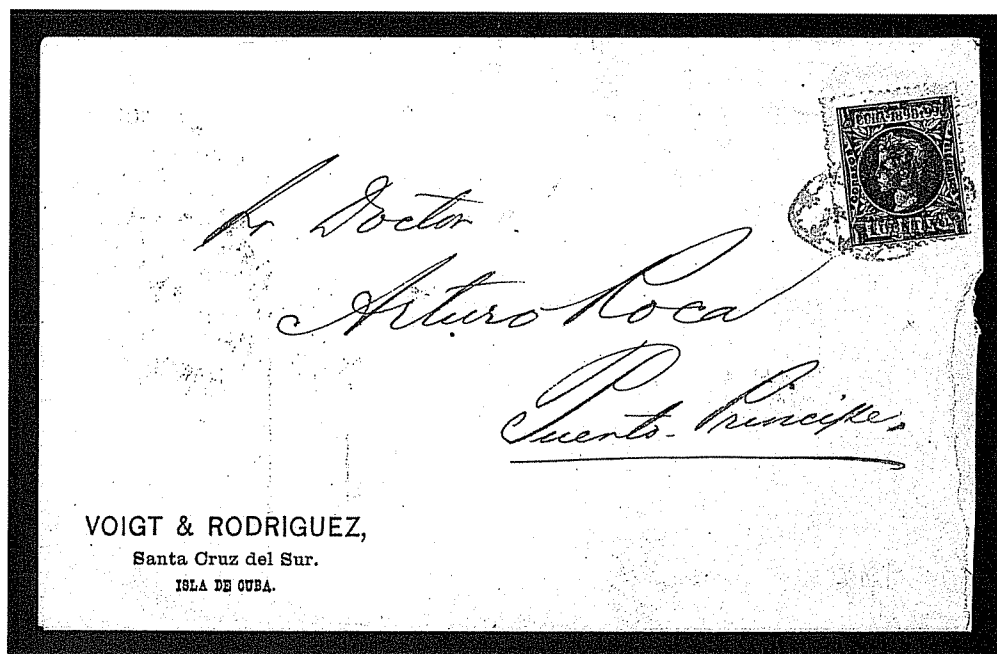 CUBA 1898-99
Sr Doctor
Arturo Roca
Puerto-Principe,
VOIGT & RODRIGUEZ,
Santa Cruz del Sur.
ISLA DE CUBA.